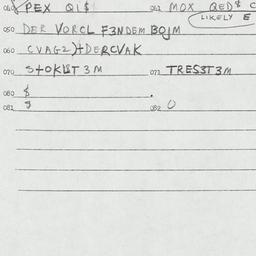 040 PEX QI$ 042 MOX QED$ C
LIKELY E
050 DER VORCL F3NDEM BOJM
060 CVAG2)+DERCVAK
070 S+OKLST 3M 071 TRES3T3M
080 $ .
081 J 082 O